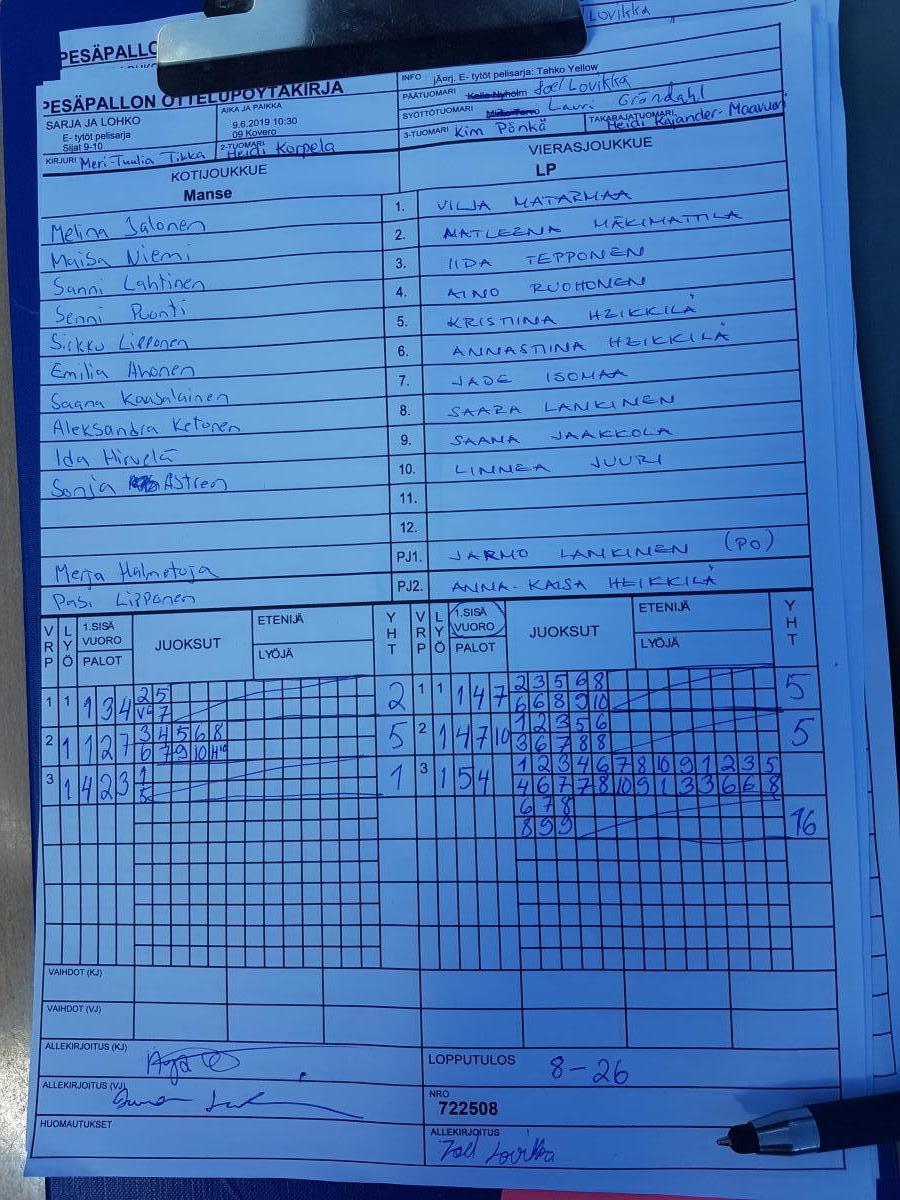 Lovikka
PESÄPALLO
PESÄPALLON OTTELUPÖYTÄKIRJA
INFO jÄ¤rj, E- tytöt pelisarja: Tahko Yellow
PÄÄTUOMARI Joel Lovikka
SYÖTTÖTUOMARI Lauri Gröndahl
3-TUOMARI Kim Pönkä TAKARAJATUOMARI Heidi Kajander-Maavuori
SARJA JA LOHKO
E- tytöt pelisarja
Sijat 9-10
AIKA JA PAIKKA
9.6.2019 10:30
09 Kovero
KIRJURI Meri-Tuulia Tikka 2-TUOMARI Heidi Korpela
KOTIJOUKKUE VIERASJOUKKUE
Manse LP
Melina Jalonen 1. VILJA MATARMAA
Maisa Niemi 2. MATLEENA MÄKIMATTILA
Sanni Lahtinen 3. IIDA TEPPONEN
Senni Puonti 4. AINO RUOHONEN
Sirkku Lipponen 5. KRISTIINA HEIKKILÄ
Emilia Ahonen 6. ANNASTIINA HEIKKILÄ
Saana Kausalainen 7. JADE ISOMAA
Aleksandra Ketonen 8. SAARA LANKINEN
Ida Hirvelä 9. SAANA JAAKKOLA
Sonja Astren 10. LINNEA JUURI
11.
12.
Merja PJ1. JARMO LANKINEN (PO)
Pasi Lipponen PJ2. ANNA-KAISA HEIKKILÄ
VRP LYÖ 1.SISÄ VUORO PALOT JUOKSUT ETENIJÄ LYÖJÄ YHT VRP LYÖ 1.SISÄ VUORO PALOT JUOKSUT ETENIJÄ LYÖJÄ YHT
1 1 1 3 4 2 5 2 1 1 1 4 7 2 3 5 6 8 5
7 6 6 8 9 10
2 1 1 2 7 3 4 5 6 8 5 2 1 4 7 10 1 2 3 5 6 5
6 7 9 10 3 6 7 8 8
3 1 4 2 3 1 1 3 1 5 4 1 2 3 4 6 7 8 10 9 1 2 3 5
5 4 6 7 7 8 10 9 1 3 3 6 6 8
6 7 8
8 9 9 16
VAIHDOT (KJ)
VAIHDOT (VJ)
ALLEKIRJOITUS (KJ)
LOPPUTULOS 8-26
ALLEKIRJOITUS (VJ)
NRO
722508
HUOMAUTUKSET
ALLEKIRJOITUS
Joel Lovikka